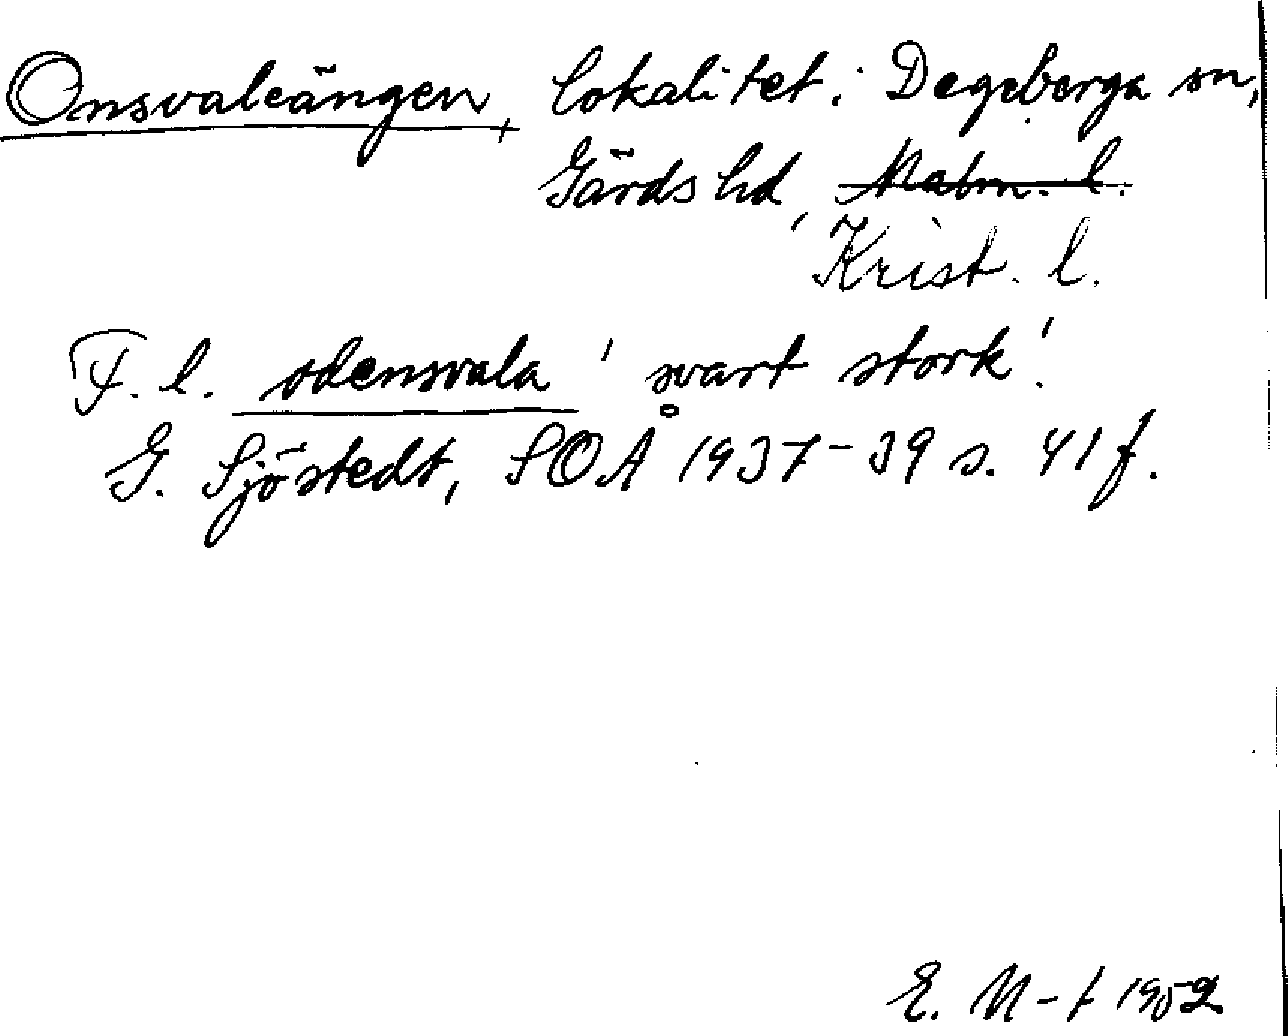 Onsvaleängen, lokalitet i Degeberga sn,
Gärds hd, Malm. l.
Krist. l.
F. l. odensvala 'svart stork'.
G. Sjöstedt, SOÅ 1937-39 s. 41 f.
E. M-t 1952